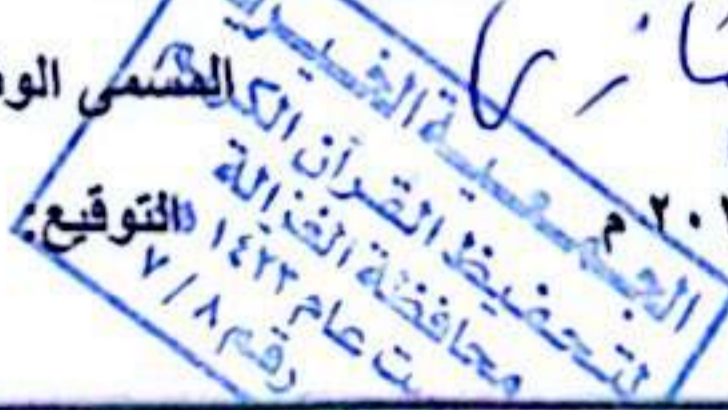 المسمى الو
التوقيع:
٢٠ م
الجمعية الخيرية
لتحفيظ القرآن الكريم
محافظة الغزالة
ت عام ١٤٢٣
رقم ٧/٨